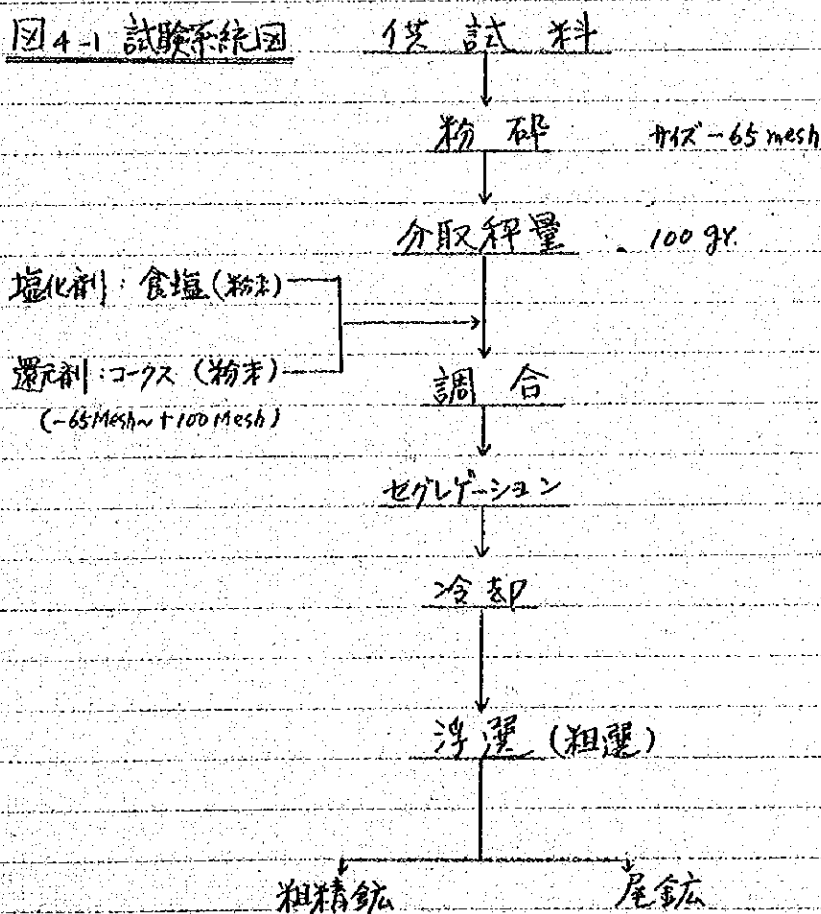 図4-1 試験系統図
供試料
粉砕 サイズ -65 mesh
分取秤量 100 gr.
塩化剤：食塩（粉末）
還元剤：コークス（粉末）
(-65Mesh～+100Mesh)
調合
セグレゲーション
冷却
浮選（粗選）
粗精鉱 尾鉱